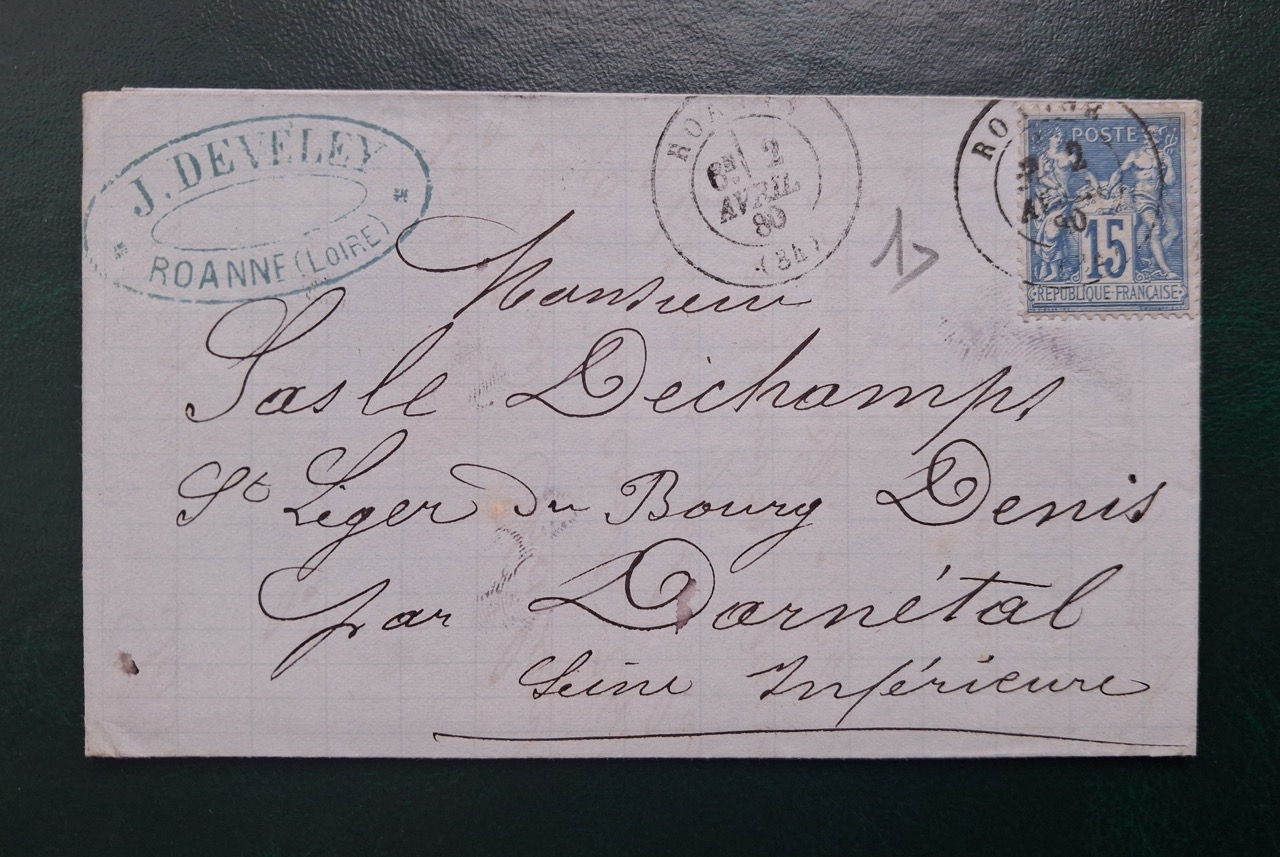 J. DEVELEY
ROANNE (LOIRE)
ROANNE
6E 2
AVRIL
80
(84)
ROANNE
2
AVRIL
80
POSTE
15
REPUBLIQUE FRANÇAISE
1>
Monsieur
Sasle Déchamps
St Léger du Bourg Denis
par Darnétal
Seine Inférieure